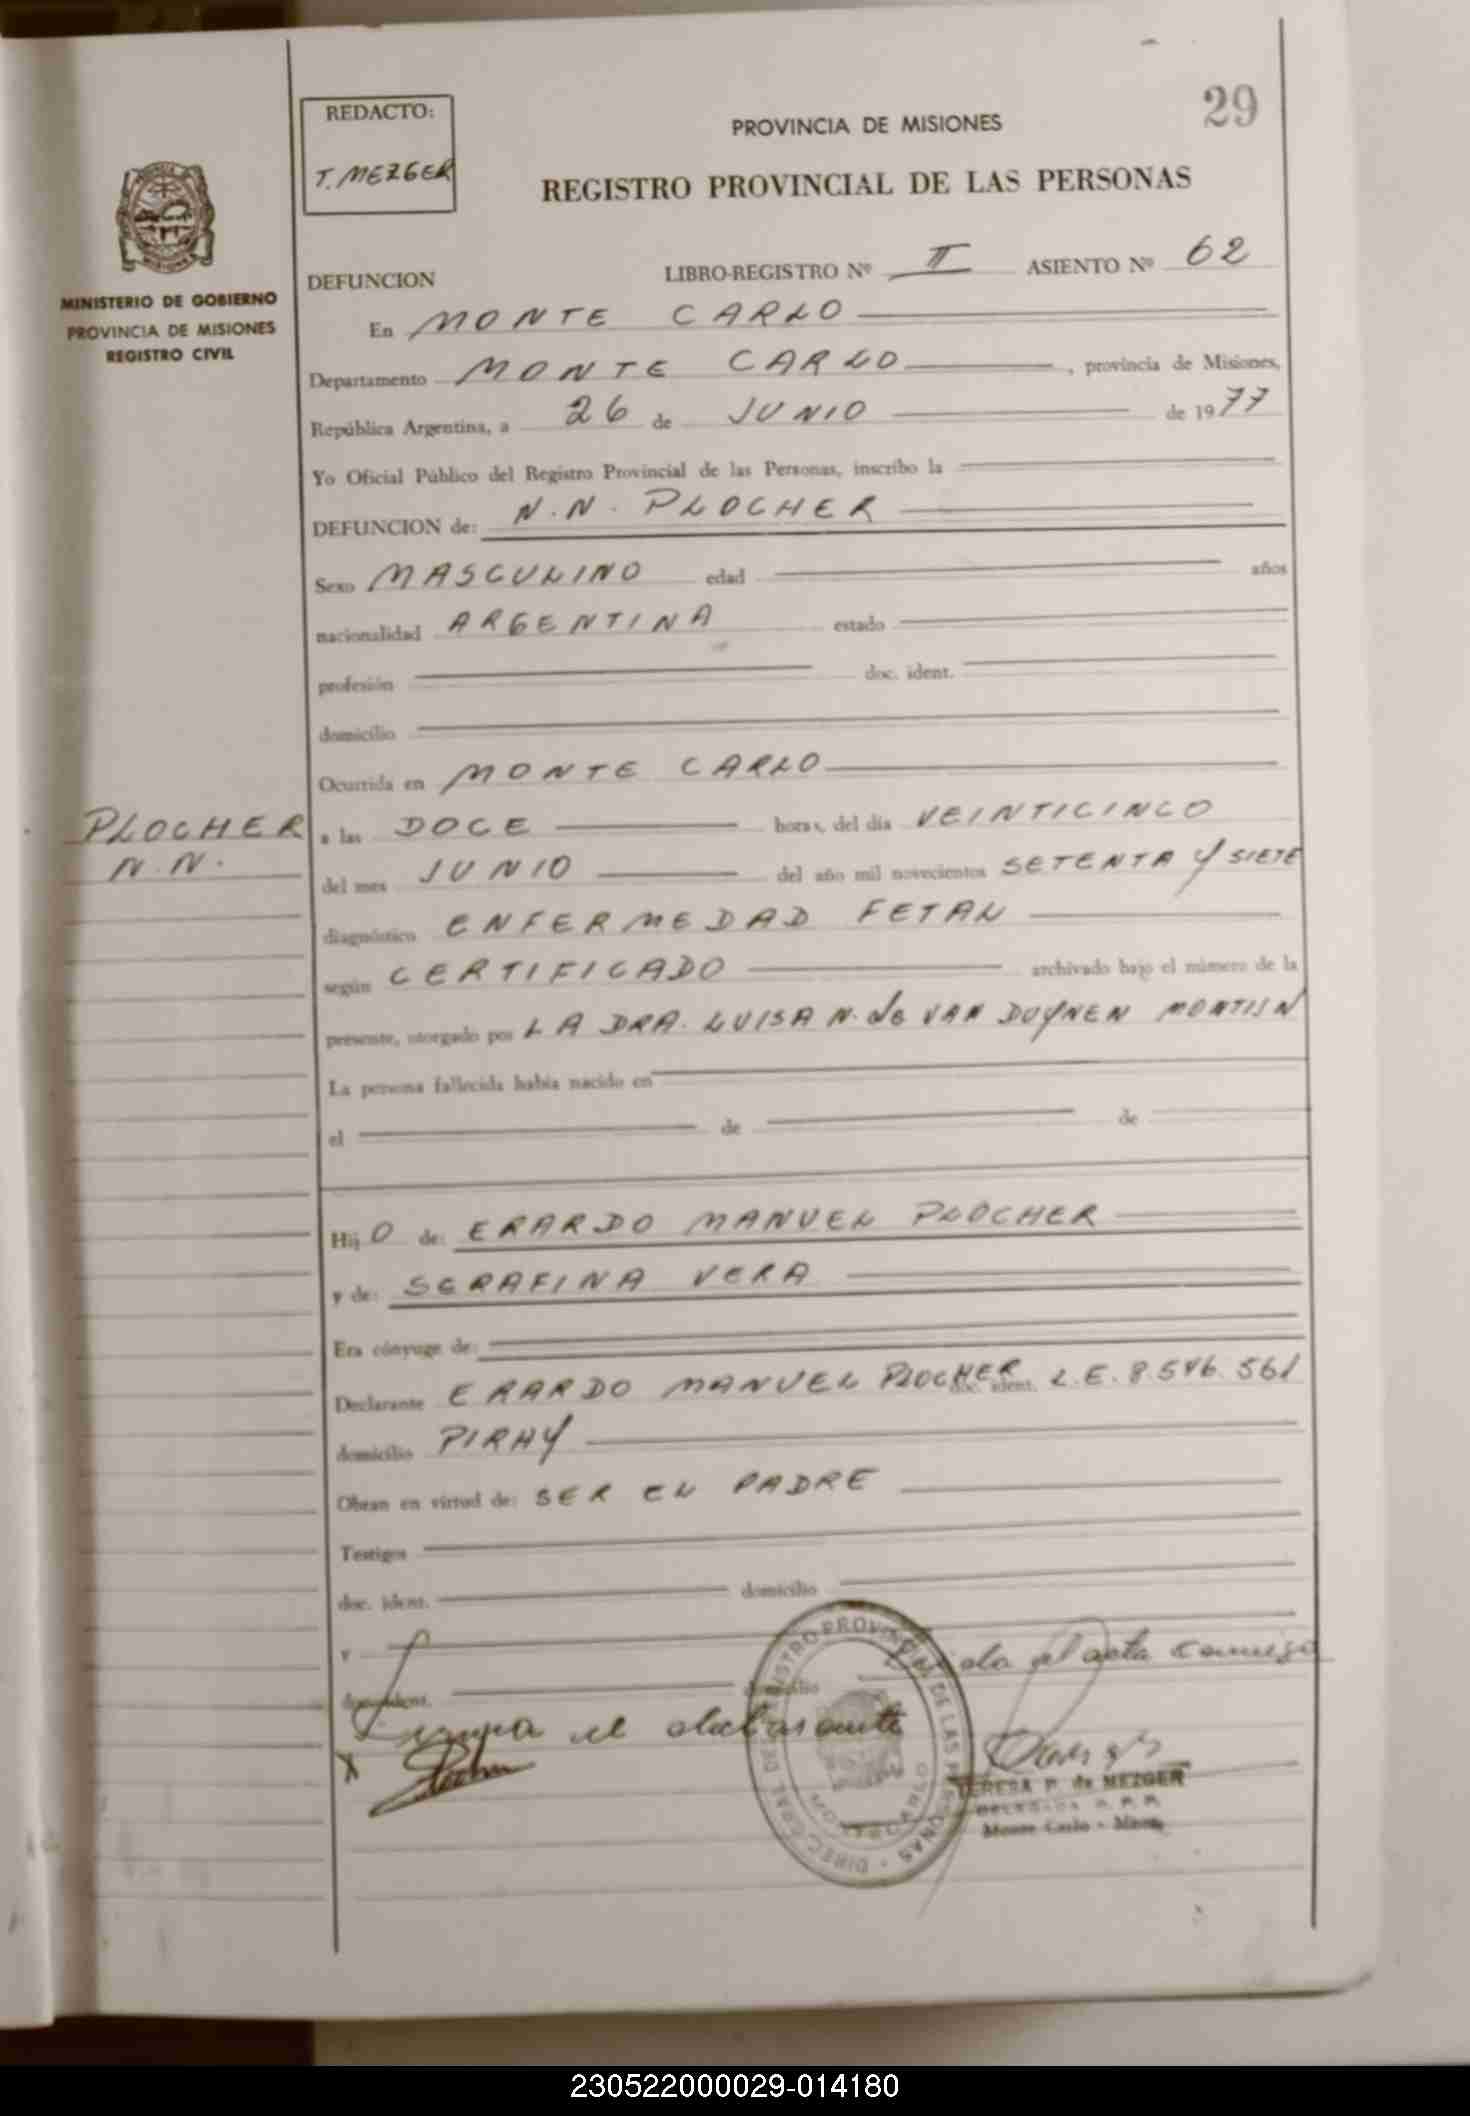 29
REDACTO:
T. MEZGER
PROVINCIA DE MISIONES
REGISTRO PROVINCIAL DE LAS PERSONAS
MISIONES
MINISTERIO DE GOBIERNO
PROVINCIA DE MISIONES
REGISTRO CIVIL
DEFUNCION LIBRO-REGISTRO Nº II ASIENTO Nº 62
En MONTE CARLO
Departamento MONTE CARLO, provincia de Misiones,
República Argentina, a 26 de JUNIO de 1977
Yo Oficial Público del Registro Provincial de las Personas, inscribo la
DEFUNCION de: N.N. PLOCHER
Sexo MASCULINO edad años
nacionalidad ARGENTINA estado
profesión doc. ident.
domicilio
Ocurrida en MONTE CARLO
PLOCHER
N.N.
a las DOCE horas, del día VEINTICINCO
del mes JUNIO del año mil novecientos SETENTA Y SIETE
diagnóstico ENFERMEDAD FETAL
según CERTIFICADO archivado bajo el número de la
presente, otorgado por LA DRA. LUISA N. de VAN DUYNEN MONTIJN
La persona fallecida había nacido en
el de de
Hij O de: ERARDO MANUEL PLOCHER
y de: SERAFINA VERA
Era cónyuge de:
Declarante ERARDO MANUEL PLOCHER doc. ident. L.E. 8.546.561
domicilio PIRAY
Obran en virtud de: SER EL PADRE
Testigos
doc. ident. domicilio
y
doc. ident. domicilio
el acta conmigo
Firma el declarante
X
DIREC. GRAL. DEL REGISTRO PROVINCIAL DE LAS PERSONAS
MONTECARLO
TERESA P. de MEZGER
DELEGADA R. P. P.
Monte Carlo - Mnes.
230522000029-014180